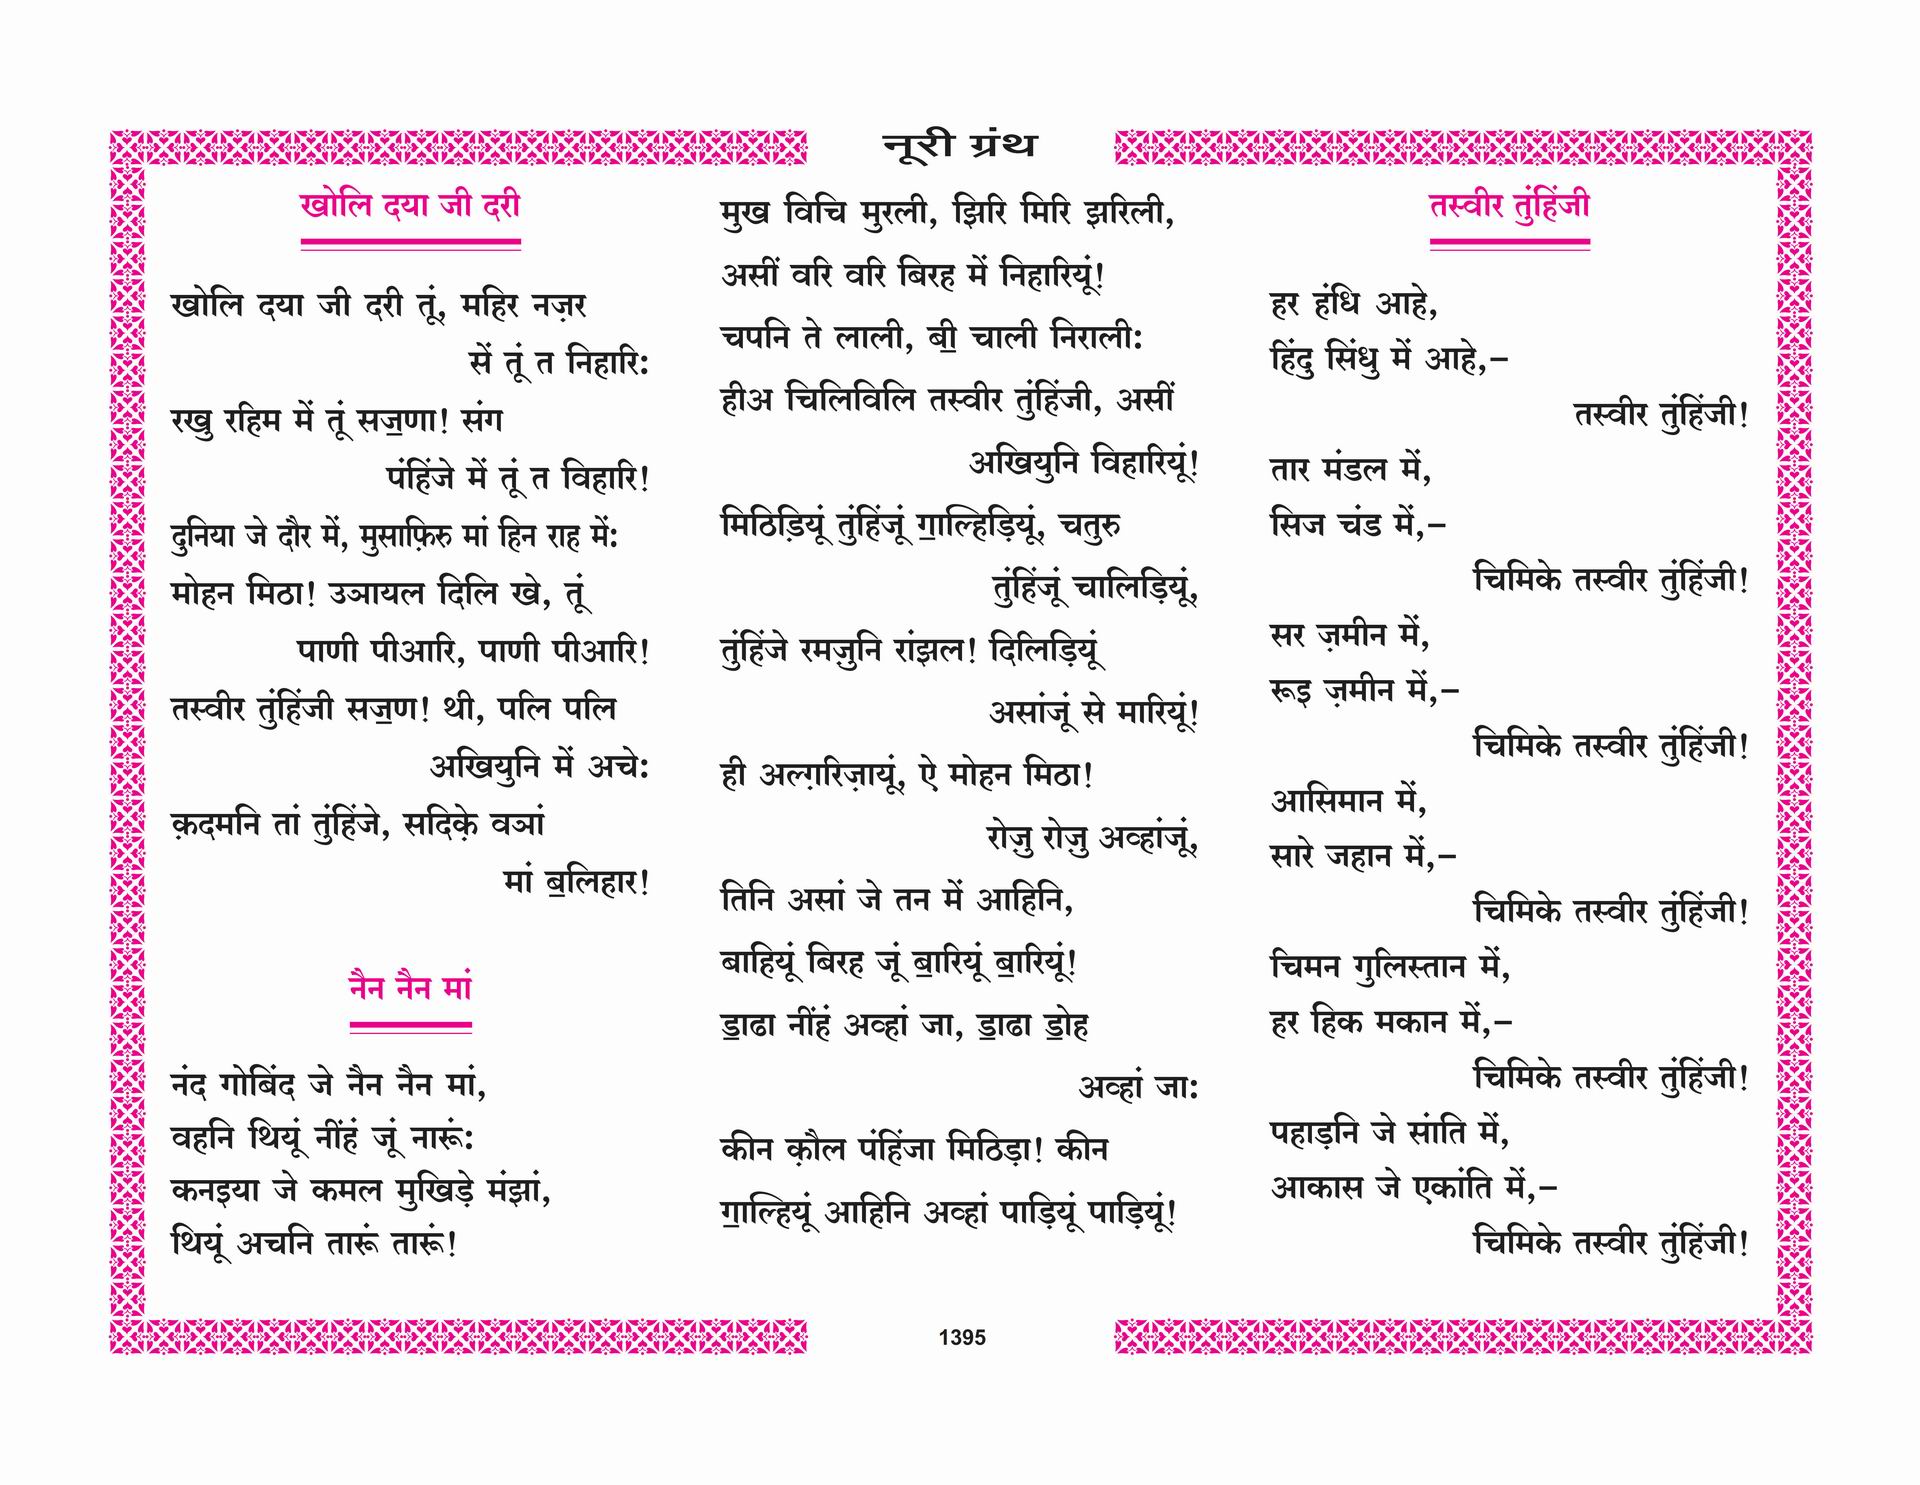 नूरी ग्रंथ
खोलि दया जी दरी
खोलि दया जी दरी तूं, महिर नज़र
सें तूं त निहारि:
रखु रहिम में तूं सॼणा! संग
पंहिंजे में तूं त विहारि!
दुनिया जे दौर में, मुसाफ़िरु मां हिन राह में:
मोहन मिठा! उञायल दिलि खे, तूं
पाणी पीआरि, पाणी पीआरि!
तस्वीर तुंहिंजी सॼण! थी, पलि पलि
अखियुनि में अचे:
क़दमनि तां तुंहिंजे, सदिक़े वञां
मां ॿलिहार!
नैन नैन मां
नंद गोबिंद जे नैन नैन मां,
वहनि थियूं नींहं जूं नारूं:
कनइया जे कमल मुखिड़े मंझां,
थियूं अचनि तारूं तारूं!
मुख विचि मुरली, झिरि मिरि झरिली,
असीं वरि वरि बिरह में निहारियूं!
चपनि ते लाली, ॿी चाली निराली:
हीअ चिलिविलि तस्वीर तुंहिंजी, असीं
अखियुनि विहारियूं!
मिठिड़ियूं तुंहिंजूं ॻाल्हिड़ियूं, चतुरु
तुंहिंजूं चालिड़ियूं,
तुंहिंजे रमज़ुनि रांझल! दिलिड़ियूं
असांजूं से मारियूं!
ही अल्ग़रिज़ायूं, ऐ मोहन मिठा!
रोज़ु रोज़ु अव्हांजूं,
तिनि असां जे तन में आहिनि,
बाहियूं बिरह जूं ॿारियूं ॿारियूं!
ॾाढा नींहं अव्हां जा, ॾाढा ॾोह
अव्हां जा:
कीन क़ौल पंहिंजा मिठिड़ा! कीन
ॻाल्हियूं आहिनि अव्हां पाड़ियूं पाड़ियूं!
तस्वीर तुंहिंजी
हर हंधि आहे,
हिंदु सिंधु में आहे,–
तस्वीर तुंहिंजी!
तार मंडल में,
सिज चंड में,–
चिमिके तस्वीर तुंहिंजी!
सर ज़मीन में,
रूइ ज़मीन में,–
चिमिके तस्वीर तुंहिंजी!
आसिमान में,
सारे जहान में,–
चिमिके तस्वीर तुंहिंजी!
चिमन गुलिस्तान में,
हर हिक मकान में,–
चिमिके तस्वीर तुंहिंजी!
पहाड़नि जे सांति में,
आकास जे एकांति में,–
चिमिके तस्वीर तुंहिंजी!
1395